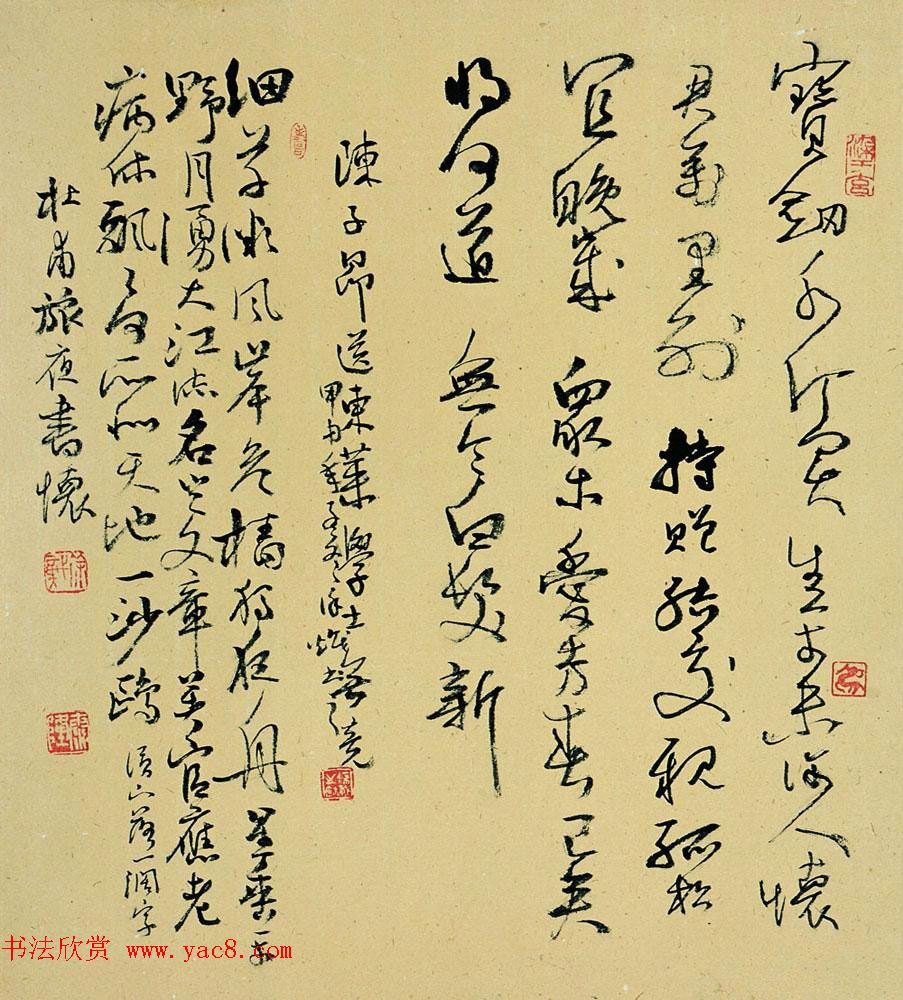 寶劔千金買 生平未許人懷
君萬里別 持贈結交親孤松
宜晚歲 眾木愛芳春已矣
將何道 無令白髮新
陳子昂送東萊學士無競
甲申
細草微風岸危檣獨夜舟星垂平
野月湧大江流名豈文章著官應老
病休飄飄何所似天地一沙鷗
落一闊字
杜甫旅夜書懷
书法欣赏 www.yac8.com